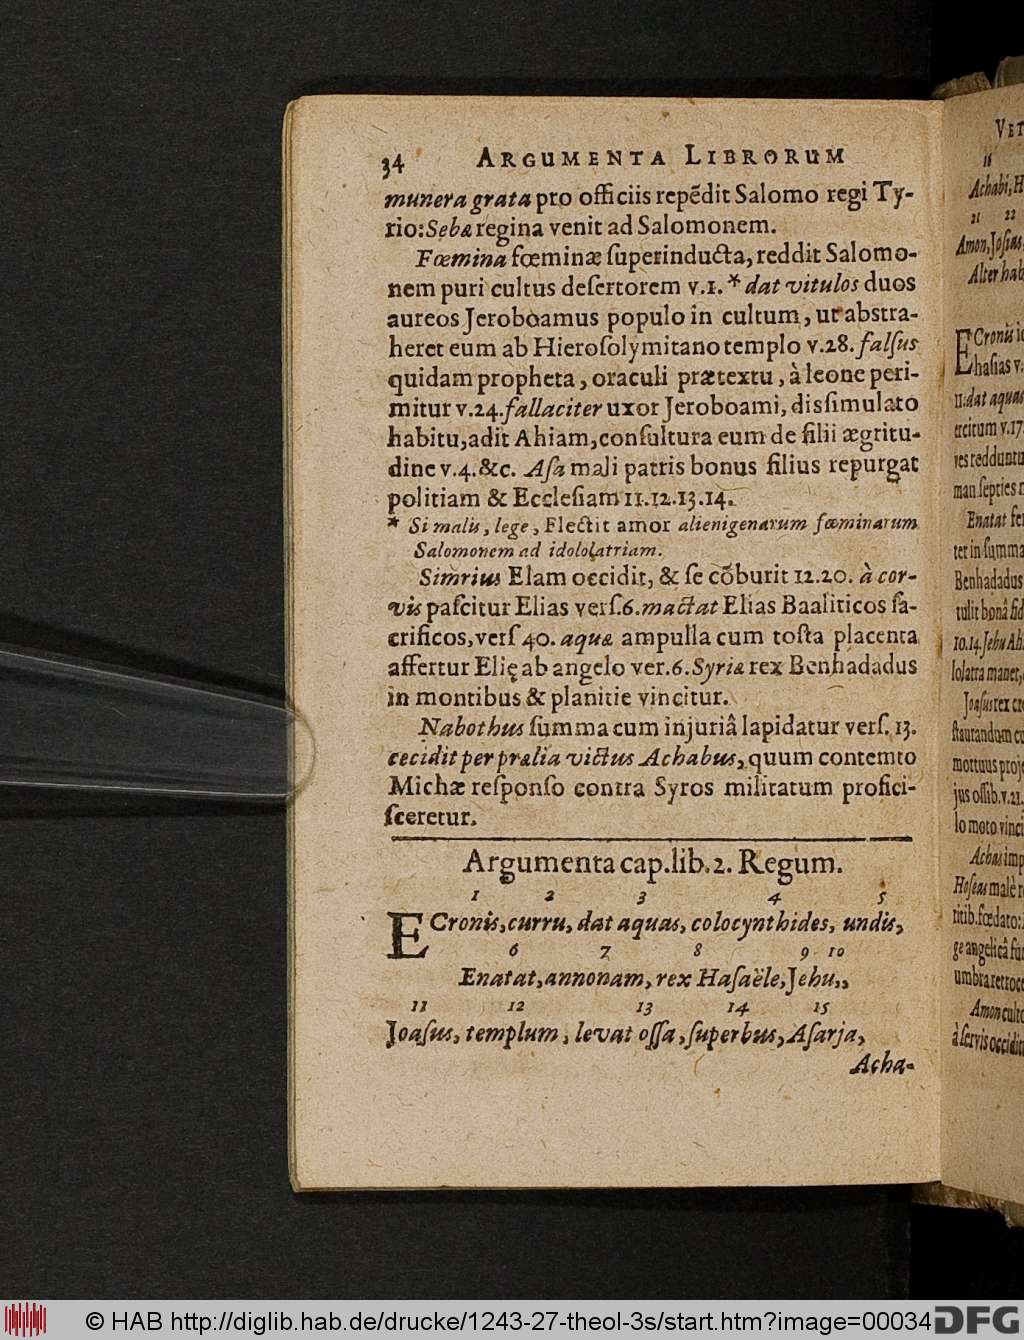 34 ARGUMENTA LIBRORUM
munera grata pro officiis repẽdit Salomo regi Ty-
rio: Sebæ regina venit ad Salomonem.
Fœmina fœminæ ſuperinducta, reddit Salomo-
nem puri cultus deſertorem v.1. * dat vitulos duos
aureos Jeroboamus populo in cultum, ut abstra-
heret eum ab Hieroſolymitano templo v.28. falſus
quidam propheta, oraculi prætextu, à leone peri-
mitur v.24. fallaciter uxor Jeroboami, disſimulato
habitu, adit Ahiam, conſultura eum de filii ægritu-
dine v.4. &c. Aſa mali patris bonus filius repurgat
politiam & Eccleſiam 11.12.13.14.
* Si malis, lege, Flectit amor alienigenarum fœminarum
Salomonem ad idololatriam.
Simrius Elam occidit, & ſe cõburit 12.20. à cor-
vis paſcitur Elias verſ.6. mactat Elias Baaliticos ſa-
crificos, verſ 40. aquæ ampulla cum toſta placenta
affertur Elię ab angelo ver.6. Syriæ rex Benhadadus
in montibus & planitie vincitur.
Nabothus ſumma cum injuriâ lapidatur verſ. 13.
cecidit per prælia victus Achabus, quum contemto
Michæ reſponſo contra Syros militatum profici-
ſceretur.
Argumenta cap. lib. 2. Regum.
1 2 3 4 5
ECronis, curru, dat aquas, colocynthides, undis,
6 7 8 9 10
Enatat, annonam, rex Haſaële, Jehu,,
11 12 13 14 15
Joaſus, templum, levat oſſa, ſuperbus, Aſarja,
Acha-
VET
16
Achabi, H
21 22
Amon, Joſias,
Alter hab
ECronis
haſias v.
11. dat aquas
ercitum v.17.
ves redduntu
man ſepties
Enatat fer
tet in ſumma
Benhadadus
tulit bonâ fid
10.14. Jehu Ah
lolatra manet,
Joaſus rex
ſtaurandum cu
mortuus proje
jus oſſib. v.21.
lo moto vinci
Achas imp
Hoſeas malè
ritib. fœdato:
ge angelicâ fu
umbra retroce
Amon culto
à ſervis occiditu
© HAB http://diglib.hab.de/drucke/1243-27-theol-3s/start.htm?image=00034
DFG